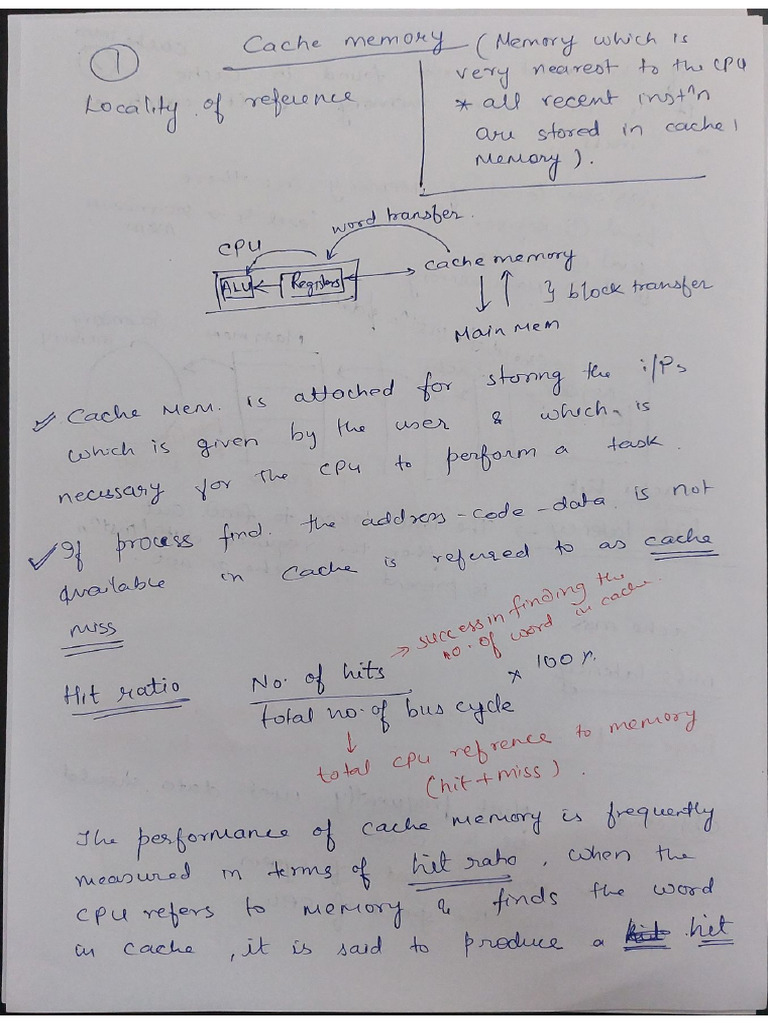 1
Cache memory (Memory which is
very nearest to the CPU
* all recent instn
are stored in cache
Memory).
Locality of reference
word transfer.
CPU
ALU Registers
cache memory
} block transfer
Main Mem
✓ Cache Mem. is attached for storing the i/Ps
which is given by the user & which is
necessary for the CPU to perform a task.
✓ If process find. the address-code-data is not
available in cache is referred to as cache
miss
→ success in finding the
no. of word in cache.
Hit ratio No. of hits
total no. of bus cycle
* 100 %.
↓
total CPU refrence to memory
(hit + miss).
The performance of cache memory is frequently
measured in terms of hit rato, when the
CPU refers to memory & finds the word
in cache, it is said to produce a hit